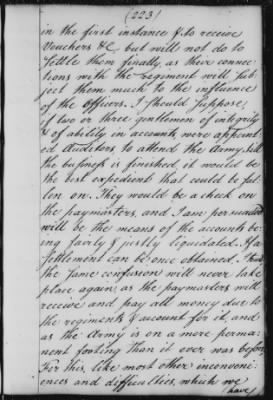 (223)
in the first instance & to receive
Vouchers &C, but will not do to
settle them finally, as their connec-
tions with the regiment will sub-
ject them much to the influence
of the Officers. I should suppose,
if two or three gentlemen of integrity
& of ability in accounts, were appoint-
ed Auditors to attend the Army, till
the business is finished, it would be
the best expedient that could be fal-
len on. They would be a check on
the paymasters, and I am persuaded
will be the means of the accounts be-
ing fairly & justly liquidated. If a
settlement can be once obtained. I trust
the same confusion will never take
place again, as the paymasters will
receive and pay all money due to
the regiments & account for it, and
as the Army is on a more perma-
nent footing than it ever was before.
For this, like most other inconveni-
ences and difficulties, which we
have